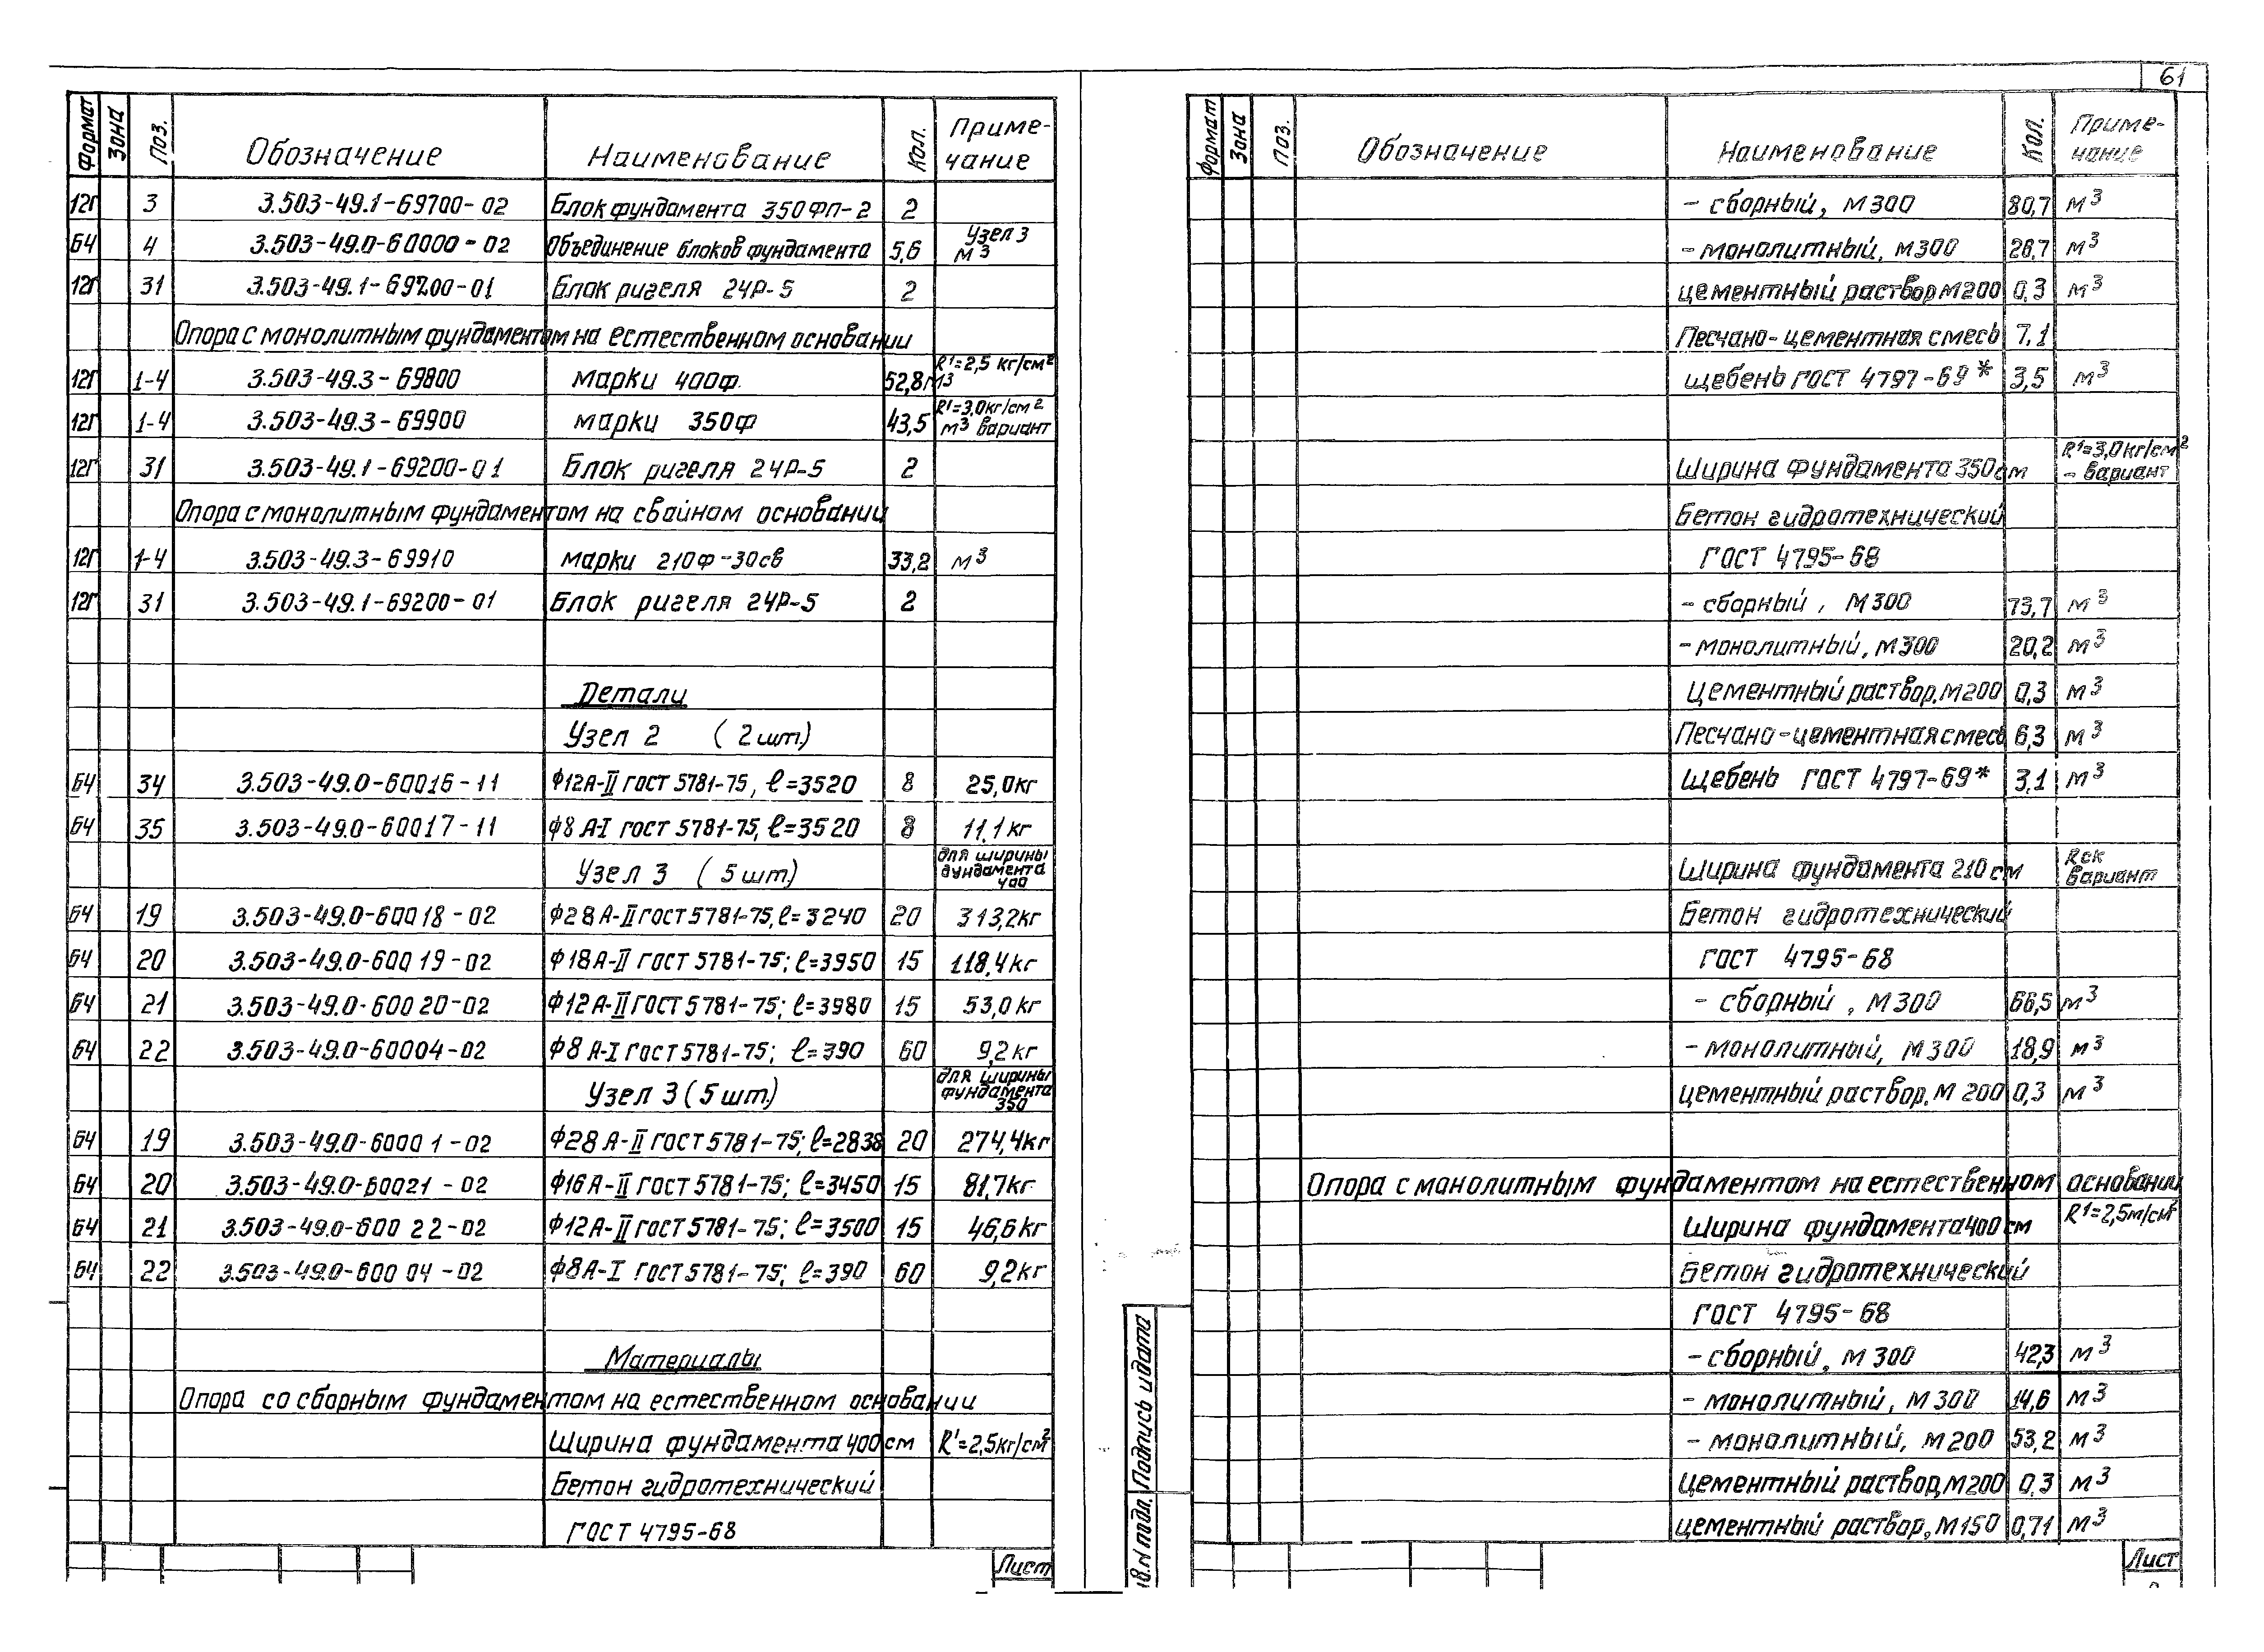 61
Формат Зона Поз. Обозначение Наименование Кол. Приме-
чание
12Г 3 3.503-49.1-69700-02 Блок фундамента 350ФП-2 2
БЧ 4 3.503-49.0-60000-02 Объединение блоков фундамента 5,6 Узел 3
м³
12Г 31 3.503-49.1-69200-01 Блок ригеля 24Р-5 2
Опора с монолитным фундаментом на естественном основании
12Г 1-4 3.503-49.3-69800 марки 400ф. 52,8 м3 R¹=2,5 кг/см²
12Г 1-4 3.503-49.3-69900 марки 350ф 43,5 R¹=3,0кг/см²
м³ вариант
12Г 31 3.503-49.1-69200-01 Блок ригеля 24Р-5 2
Опора с монолитным фундаментом на свайном основании
12Г 1-4 3.503-49.3-69910 марки 210ф-30св 33,2 м³
12Г 31 3.503-49.1-69200-01 Блок ригеля 24Р-5 2
Детали
Узел 2 (2шт.)
БЧ 34 3.503-49.0-60016-11 Ф12А-II ГОСТ 5781-75, ℓ=3520 8 25,0кг
БЧ 35 3.503-49.0-60017-11 Ф8 А-I ГОСТ 5781-75, ℓ=3520 8 11,1кг
Узел 3 (5шт.) для ширины
фундамента
400
БЧ 19 3.503-49.0-60018-02 Ф28А-II ГОСТ 5781-75, ℓ=3240 20 313,2кг
БЧ 20 3.503-49.0-60019-02 Ф18А-II ГОСТ 5781-75; ℓ=3950 15 118,4кг
БЧ 21 3.503-49.0-60020-02 Ф12А-II ГОСТ 5781-75; ℓ=3980 15 53,0кг
БЧ 22 3.503-49.0-60004-02 Ф8 А-I ГОСТ 5781-75; ℓ=390 60 9,2кг
Узел 3 (5шт.) для ширины
фундамента
350
БЧ 19 3.503-49.0-60001-02 Ф28 А-II ГОСТ 5781-75; ℓ=2838 20 274,4кг
БЧ 20 3.503-49.0-60021-02 Ф16А-II ГОСТ 5781-75; ℓ=3450 15 81,7кг
БЧ 21 3.503-49.0-60022-02 Ф12А-II ГОСТ 5781-75; ℓ=3500 15 46,6кг
БЧ 22 3.503-49.0-60004-02 Ф8А-I ГОСТ 5781-75; ℓ=390 60 9,2кг
Материалы
Опора со сборным фундаментом на естественном основании
Ширина фундамента 400см R'=2,5кг/см²
Бетон гидротехнический
ГОСТ 4795-68
Лист
Формат Зона Поз. Обозначение Наименование Кол. Приме-
чание
- сборный, М300 80,7 м³
- монолитный, М300 26,7 м³
цементный раствор М200 0,3 м³
Песчано-цементная смесь 7,1
щебень ГОСТ 4797-69* 3,5 м³
Ширина фундамента 350см R¹=3,0кг/см²
- вариант
Бетон гидротехнический
ГОСТ 4795-68
- сборный, М300 73,7 м³
- монолитный, М300 20,2 м³
Цементный раствор, М200 0,3 м³
Песчано-цементная смесь 6,3 м³
щебень ГОСТ 4797-69* 3,1 м³
Ширина фундамента 210см Rск
вариант
Бетон гидротехнический
ГОСТ 4795-68
- сборный, М300 66,5 м³
- монолитный, М300 18,9 м³
цементный раствор, М 200 0,3 м³
Опора с монолитным фундаментом на естественном основании
Ширина фундамента 400см R¹=2,5м/см²
Бетон гидротехнический
ГОСТ 4795-68
- сборный, М300 42,3 м³
- монолитный, М300 14,6 м³
- монолитный, М200 53,2 м³
Цементный раствор, М200 0,3 м³
цементный раствор, М150 0,71 м³
Лист
Подпись и дата
в.N подл.